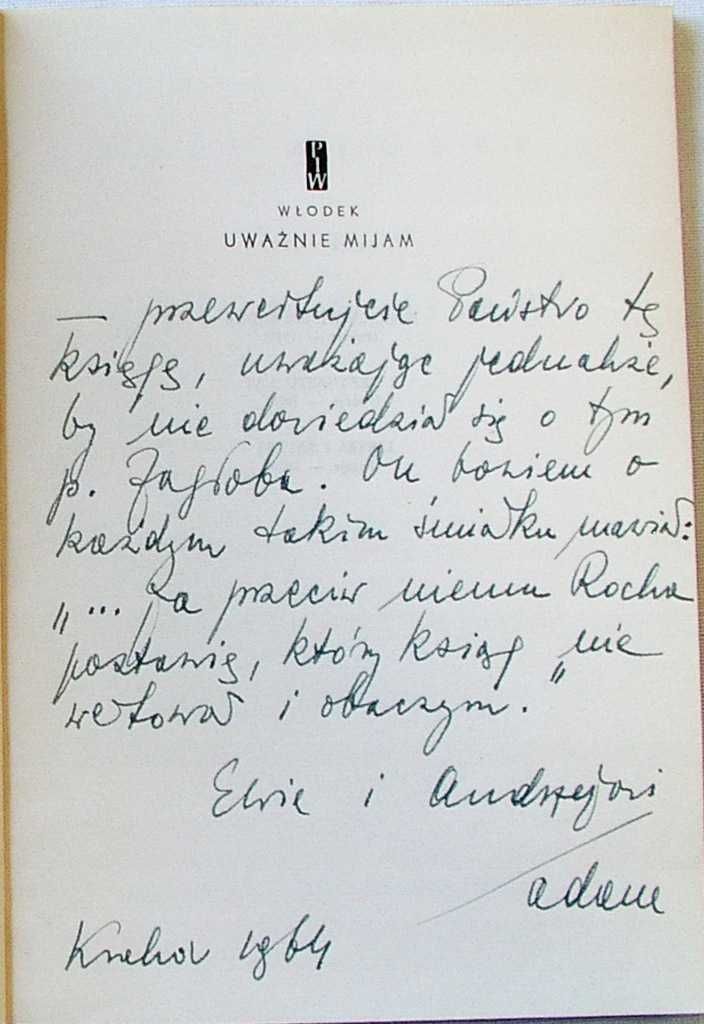 PIW
WŁODEK
UWAŻNIE MIJAM
— przewertujcie Państwo tę
księgę, uważając jednakże,
by nie dowiedział się o tym
p. Zagłoba. On bowiem o
każdym takim śmiałku mawiał:
„... Ja przeciw niemu Rocha
postawię, który ksiąg nie
wertował i obaczym."
Elwie i Andrzejowi
Adam
Kraków 1964